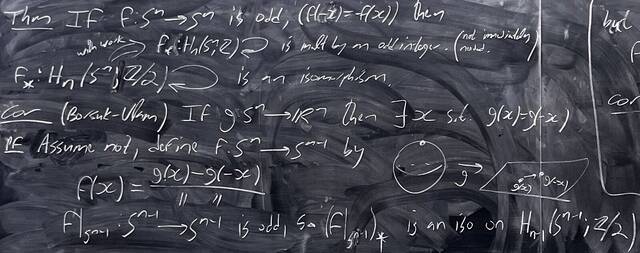 Thm If f: Sⁿ → Sⁿ is odd, (f(-x) = -f(x)) then
with work f_*: Hₙ(Sⁿ; ℤ) ↺ is mult by an odd integer. (not immediately
F_*: Hₙ(Sⁿ; ℤ/2) ↺ is an isomorphism.
Cor (Borsuk-Ulam) If g: Sⁿ → ℝⁿ then ∃ x s.t. g(x) = g(-x)
Pf Assume not, define f: Sⁿ → Sⁿ⁻¹ by
f(x) = g(x) - g(-x) / " "
g
g(x) g(-x)
f|_{Sⁿ⁻¹}: Sⁿ⁻¹ → Sⁿ⁻¹ is odd, so (f|_{Sⁿ⁻¹})_* is an iso on Hₙ₋₁(Sⁿ⁻¹; ℤ/2)
but
Cor